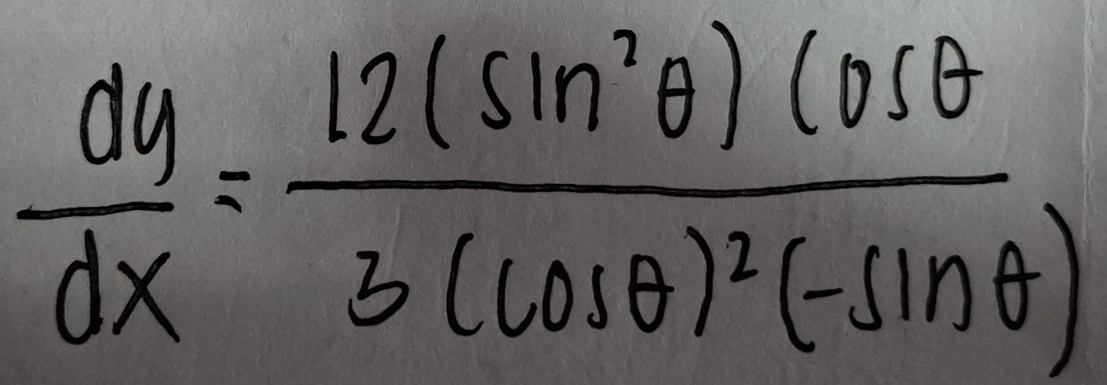 dy/dx = 12(sin²θ) cosθ / 3(cosθ)²(-sinθ)